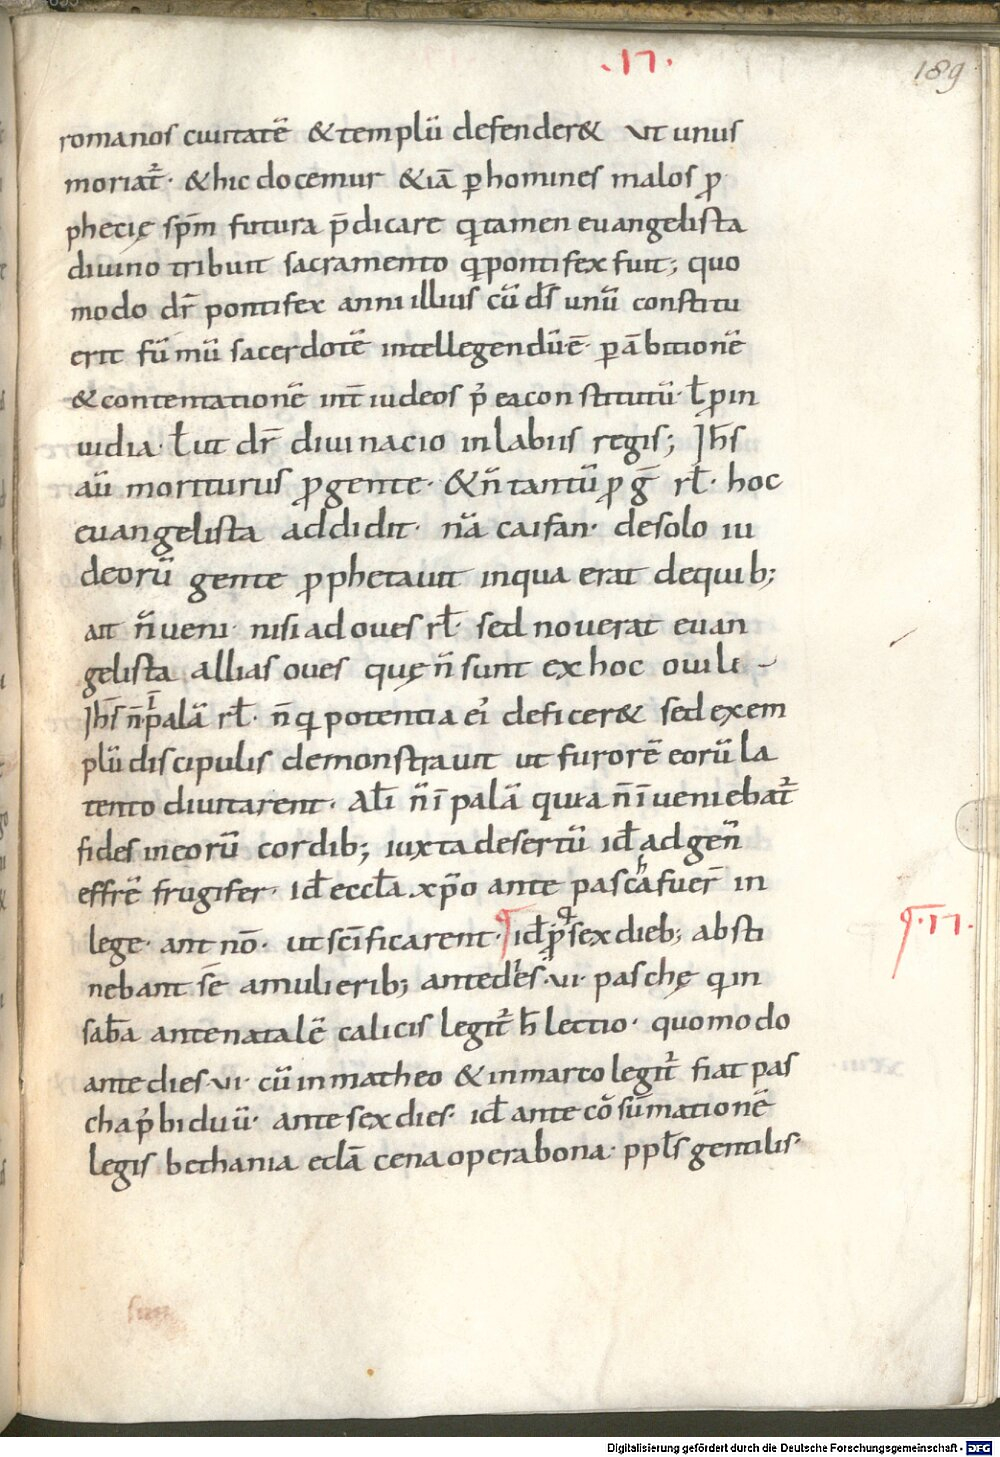 .17.
189
romanos ciuitatē & templū defender& ut unus
moriat᷑· & hic docemur &iā ꝑ homines malos ꝓ
phecię sp̄m futura p̄dicare qͥ tamen euangelista
diuino tribuit sacramento qͥ pontifex fuit; quo
modo dr̄ pontifex anni illius cū ds̄ unū constitu
erit sūmū sacerdotē intellegendū ē· ꝑ ābitionē
& contentationē int̄ iudeos p᷑ ea constitutū· ł ꝓ in
uidia· ł ut dr̄ diuinacio in labiis regis; Jhs̄
aū moriturus ꝓ gente· & n̄ tantū ꝓ ḡ rł· hoc
euangelista addidit· nā caifan· de solo iu
deorū gente ꝓphetauit in qua erat de quib;
ait n̄ ueni· nisi ad oues rł· sed nouerat euan
gelista allias oues quę n̄ sunt ex hoc ouili
Jhs̄ n̄ ī palā rł· n̄ qͥ potentia ei᷑ deficer& sed exem
plū discipulis demonstrauit ut furorē eorū la
tento diuitarent· Alī n̄ ī palā quia n̄ īueniebat᷑
fides in eorū cordib; iuxta desertū id̄ ad gen̄
effrē frugifer· id̄ eccła xp̄o ante pascha fuer̄ in
lege· ant nō· ut sc̄ificarent· id̄ p᷑ sex dieb; absti
nebant sē a mulierib; ante dies· vi· paschę qͥ in
sab̄a ante natalē calicis legit᷑ h̄ lectio· quomodo
ante dies· vi· cū in matheo & in marco legit᷑ fiat pas
cha p᷑ biduū· ante sex dies· id̄ ante cōsūmationē
legis bethania ecłā cena opera bona· ppłs gentilis·
.17.
Digitalisierung gefördert durch die Deutsche Forschungsgemeinschaft - DFG